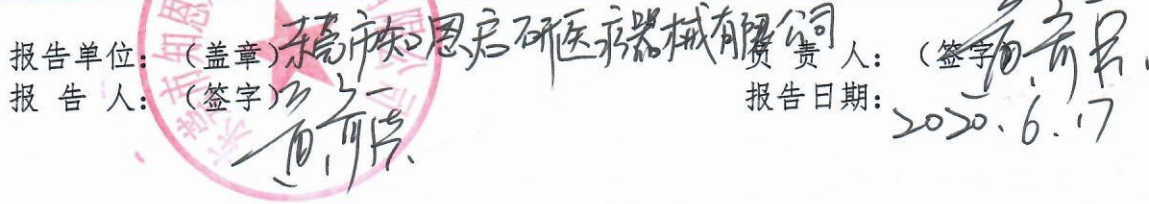 报告单位：（盖章）东莞市知恩启研医疗器械有限公司 负责人：（签字）
报告人：（签字） 报告日期：
2020.6.17
东莞市知恩